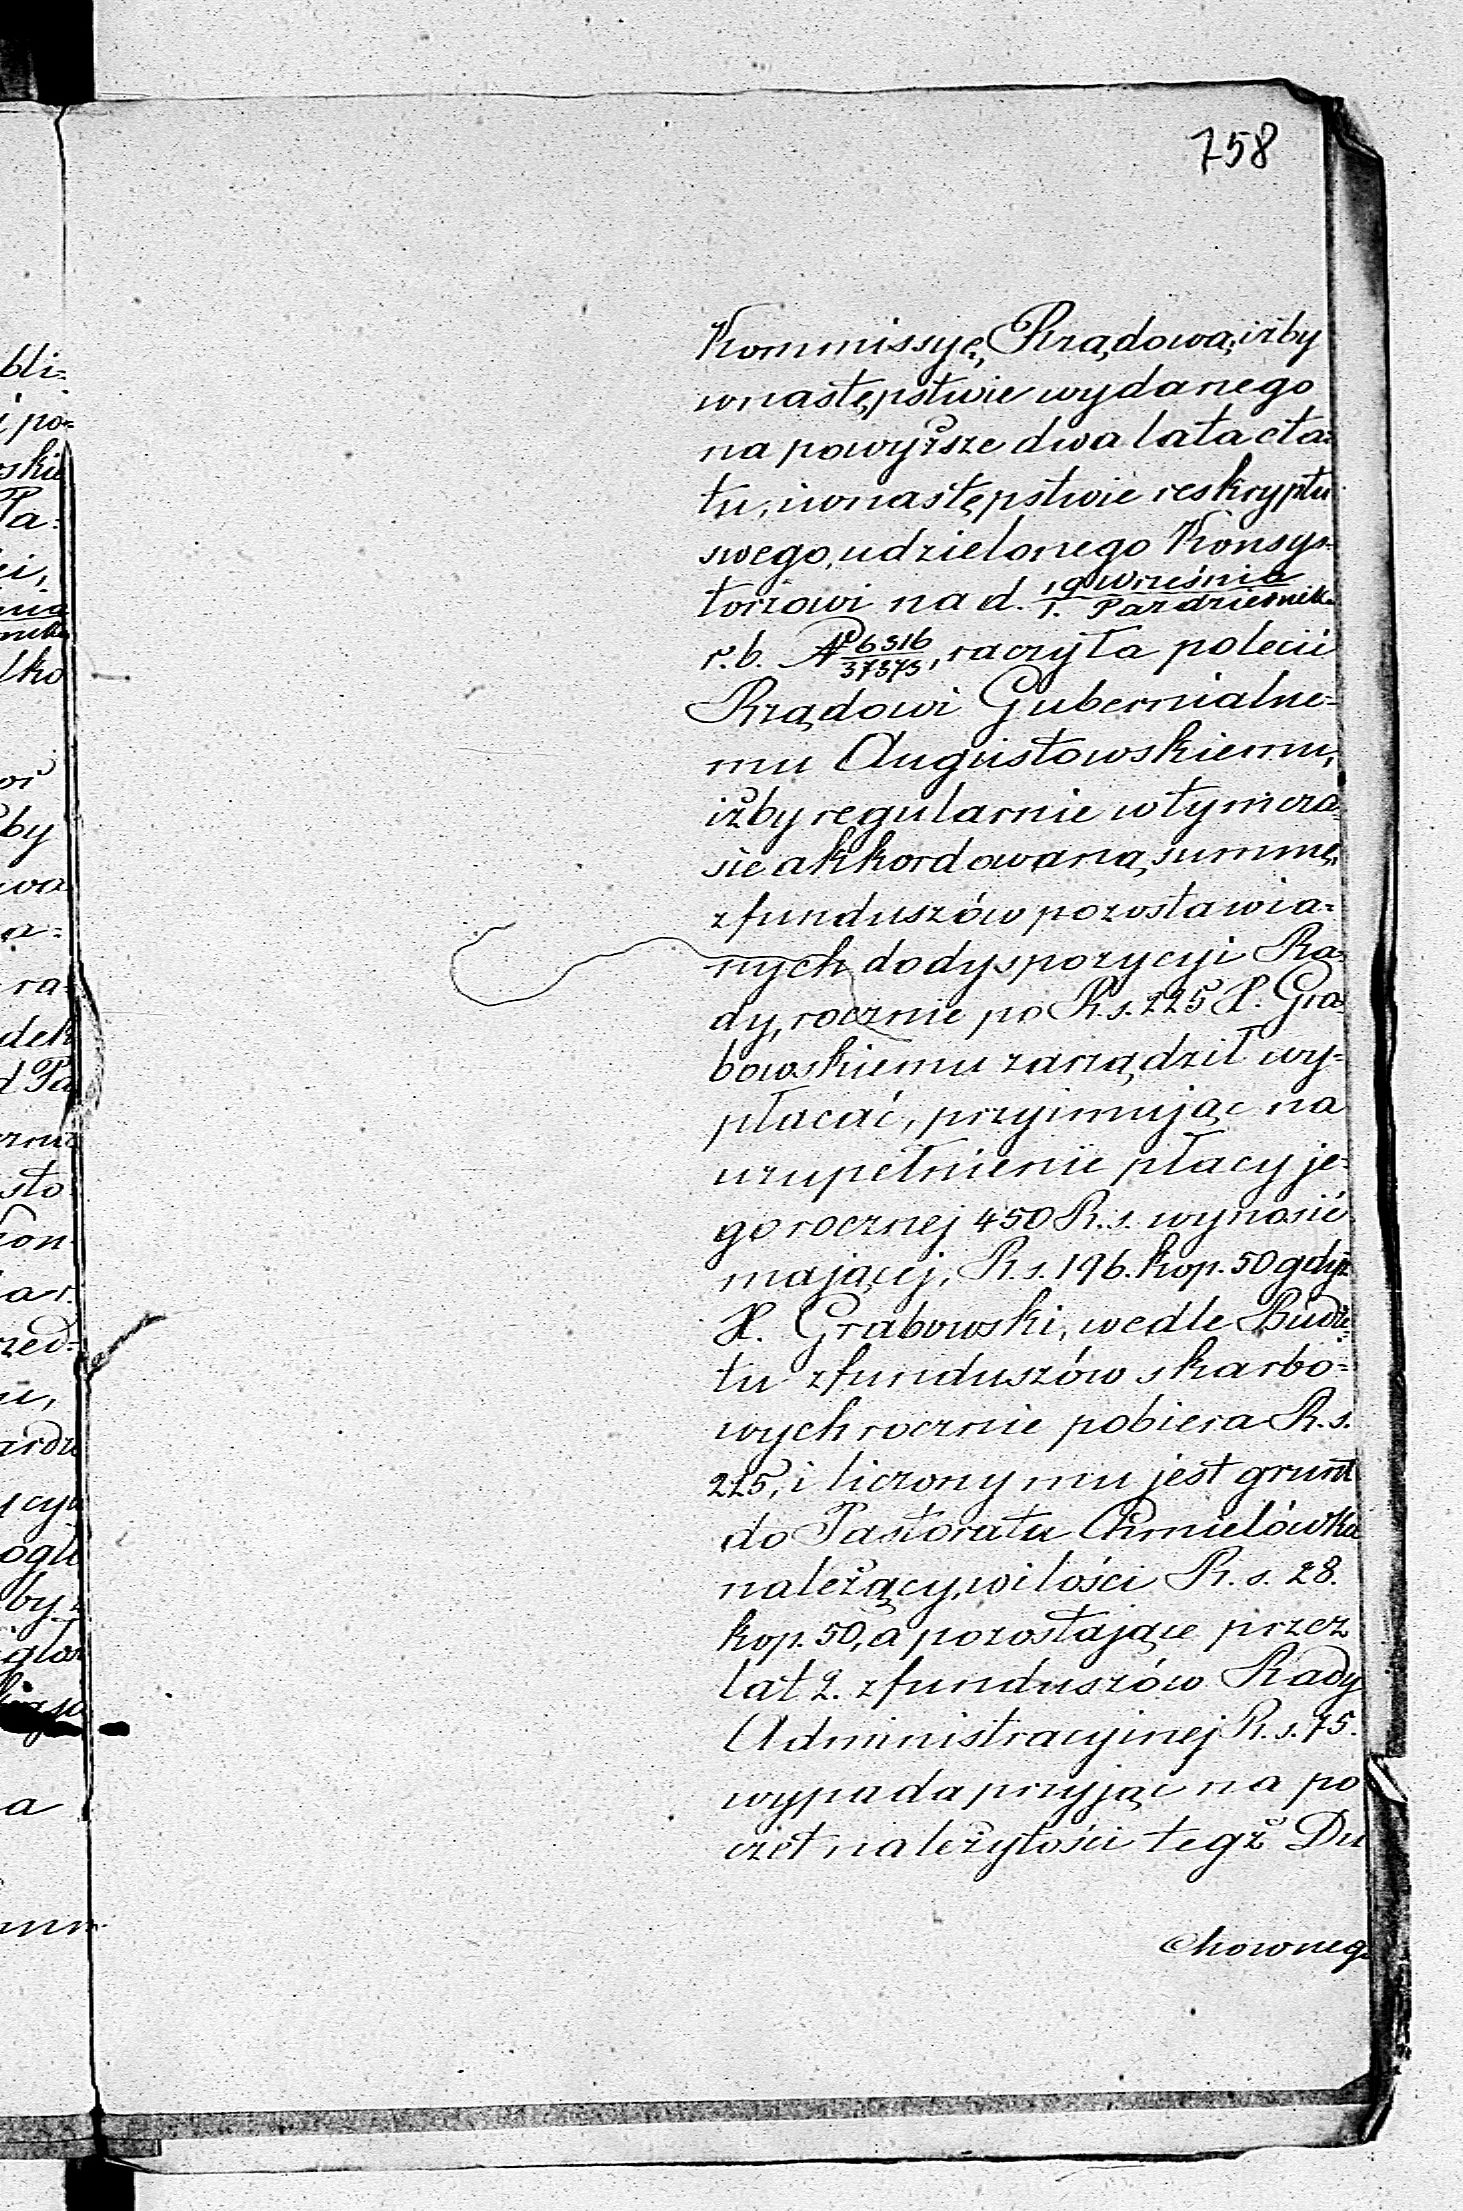 758
Kommissyę Rządową, iżby
w następstwie wydanego
na powyższe dwa lata eta=
tu, i w następstwie reskryptu
swego, udzielonego Konsys=
torzowi na d. 19 Września / 1. Października
r. b. № 6516/37375, raczyła polecić
Rządowi Gubernialne=
mu Augustowskiemu,
iżby regularnie w tym cza=
sie akkordowaną summę,
z funduszów pozostawia=
nych do dyspozycyi Ra=
dy, rocznie po R. s. 225 X. Gra=
bowskiemu zarządził wy=
płacać, przyimując na
uzupełnienie płacy je=
go rocznej 450 R. s. wynosić
mającej, R. s. 196. kop. 50 gdyż
X. Grabowski, wedle Budże=
tu z funduszów skarbo=
wych rocznie pobiera R. s.
225, i liczony mu jest grunt
do Pastoratu Chmielówka
należący, w ilości R. s. 28.
kop. 50, a pozostające przez
lat 2. z funduszów Rady
Administracyjnej R. s. 75.
wypada przyjąć na po
czet należytości tegż Du
chowneg
bli=
i po=
skie
Pa=
ci,
lko
by
wa
ra=
dek
sto
kon
zed=
by
a